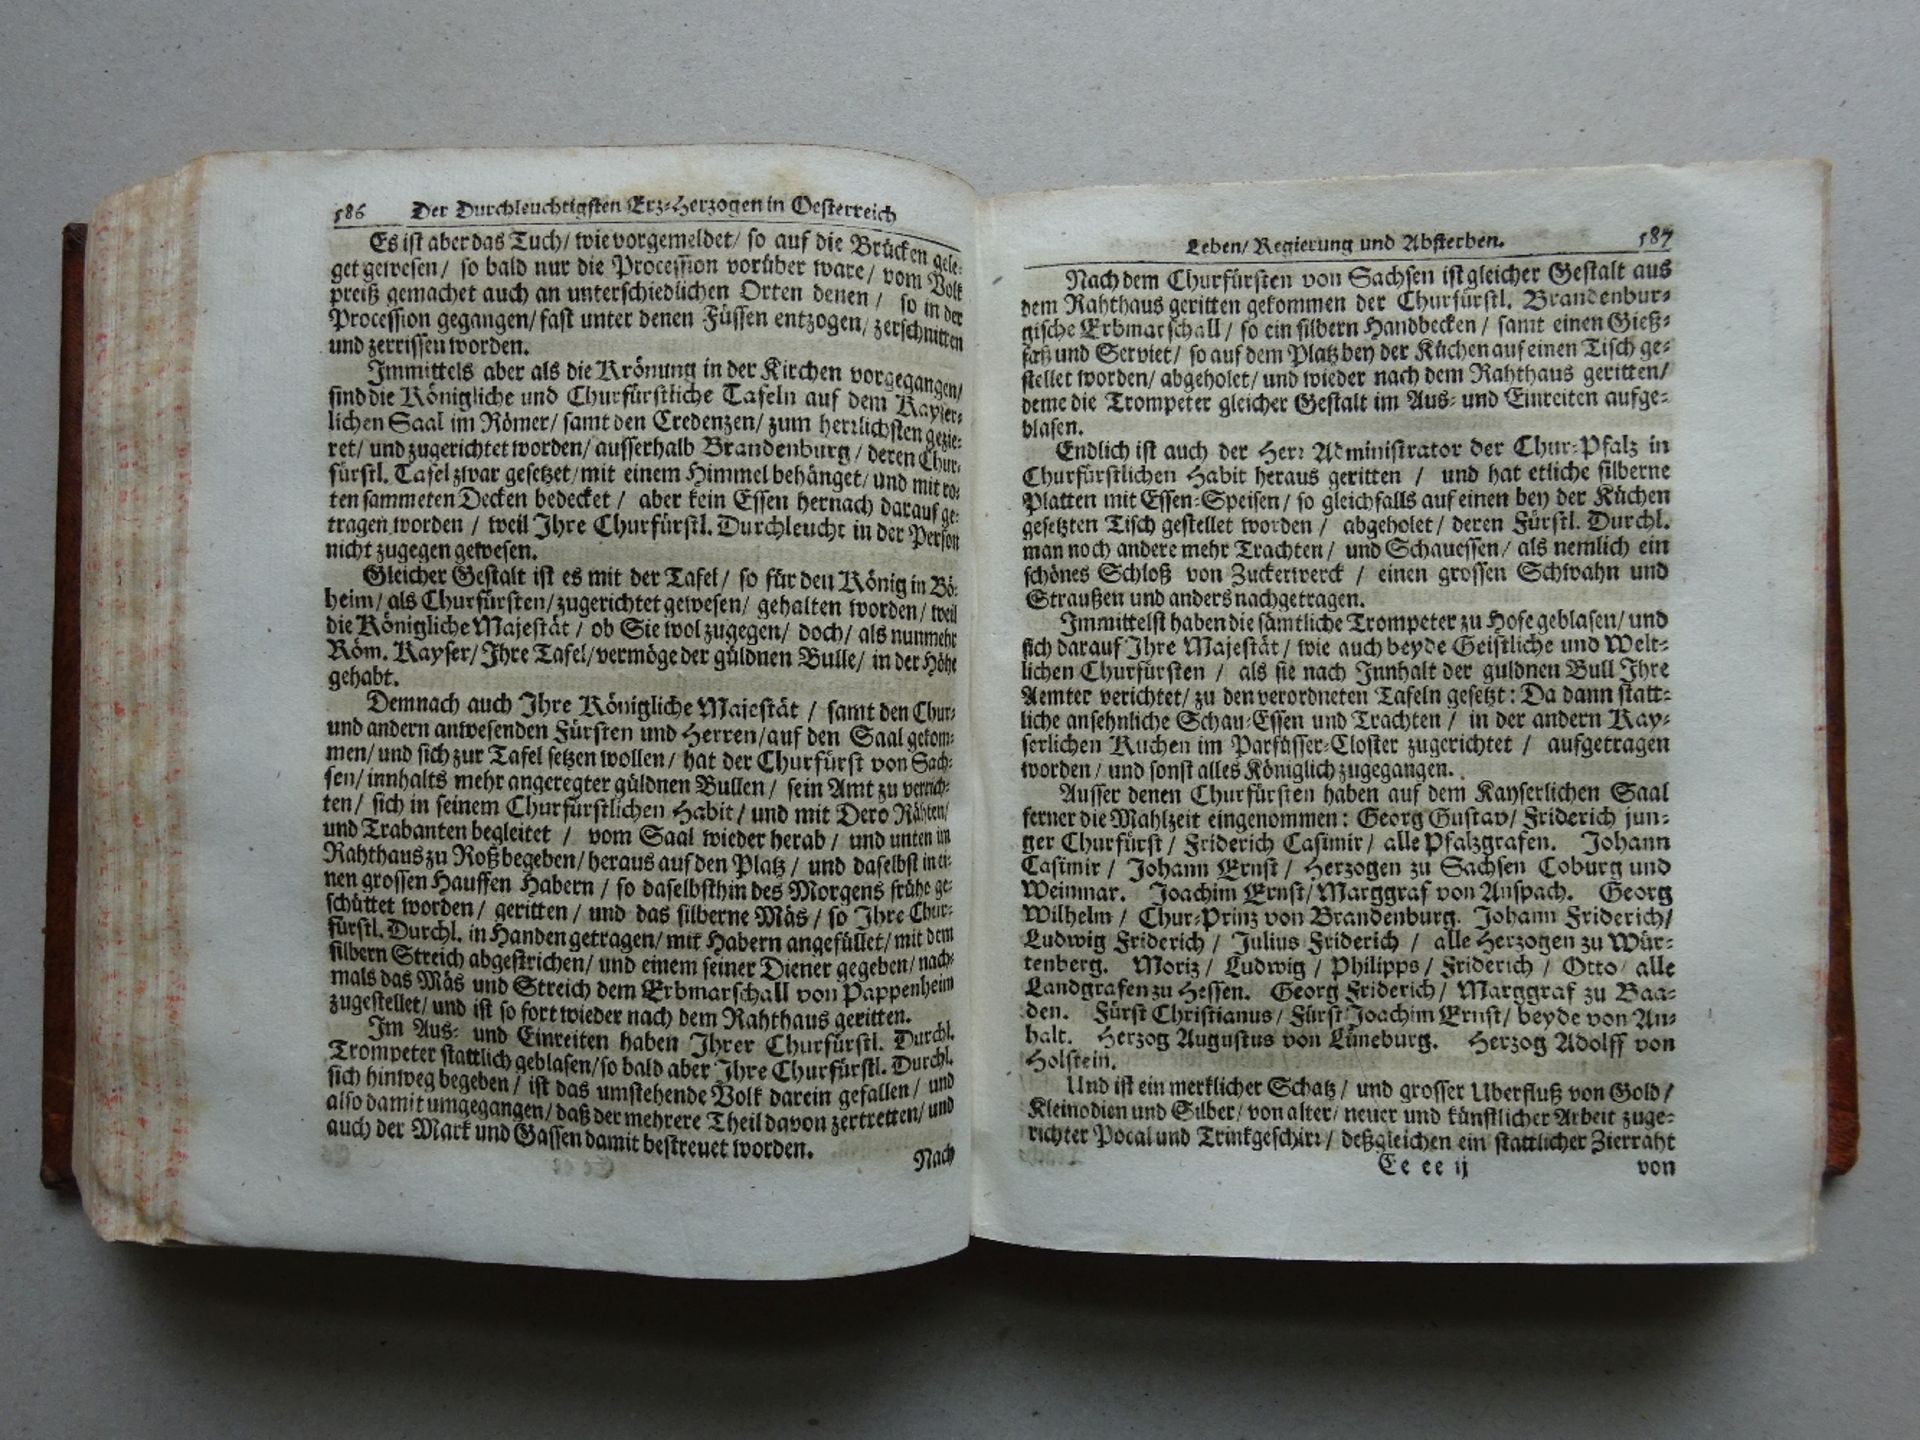 586 Der Durchleuchtigsten Erz-Herzogen in Oesterreich
Es ist aber das Tuch/ wie vorgemeldet/ so auf die Brücken gele-
get gewesen/ so bald nur die Procession vorüber ware/ vom Volk
preiß gemachet auch an unterschiedlichen Orten denen/ so in der
Procession gegangen/ fast unter denen Füssen entzogen/ zerschnitten
und zerrissen worden.
Immittels aber als die Krönung in der Kirchen vorgegangen/
sind die Königliche und Churfürstliche Tafeln auf dem Kayser-
lichen Saal im Römer/ samt den Credenzen/ zum herrlichsten gezie-
ret/ und zugerichtet worden/ ausserhalb Brandenburg/ deren Chur-
fürstl. Tafel zwar gesetzet/ mit einem Himmel behänget/ und mit ro-
ten sammeten Decken bedecket/ aber kein Essen hernach darauf ge-
tragen worden/ weil Ihre Churfürstl. Durchleucht in der Person
nicht zugegen gewesen.
Gleicher Gestalt ist es mit der Tafel/ so für den König in Bö-
heim/ als Churfürsten/ zugerichtet gewesen/ gehalten worden/ weil
die Königliche Majestät/ ob Sie wol zugegen/ doch/ als nunmehr
Röm. Kayser/ Ihre Tafel/ vermöge der güldnen Bulle/ in der Höhe
gehabt.
Demnach auch Ihre Königliche Majestät/ samt den Chur-
und andern anwesenden Fürsten und Herren/ auf den Saal gekom-
men/ und sich zur Tafel setzen wollen/ hat der Churfürst von Sach-
sen/ innhalts mehr angeregter güldnen Bullen/ sein Amt zu verrich-
ten/ sich in seinem Churfürstlichen Habit/ und mit Dero Rähten/
und Trabanten begleitet/ vom Saal wieder herab/ und unten im
Rahthaus zu Roß begeben/ heraus auf den Platz/ und daselbst in ei-
nen grossen Hauffen Habern/ so daselbsthin des Morgens frühe ge-
schüttet worden/ geritten/ und das silberne Mäs/ so Ihre Chur-
fürstl. Durchl. in Handen getragen/ mit Habern angefüllet/ mit dem
silbern Streich abgestrichen/ und einem seiner Diener gegeben/ nach-
mals das Mäs und Streich dem Erbmarschall von Pappenheim
zugestellet/ und ist so fort wieder nach dem Rahthaus geritten.
Im Aus- und Einreiten haben Ihrer Churfürstl. Durchl.
Trompeter stattlich geblasen/ so bald aber Ihre Churfürstl. Durchl.
sich hinweg begeben/ ist das umstehende Volk darein gefallen/ und
also damit umgegangen/ daß der mehrere Theil davon zertretten/ und
auch der Mark und Gassen damit bestreuet worden.
Nach
Leben/ Regierung und Absterben. 587
Nach dem Churfürsten von Sachsen ist gleicher Gestalt aus
dem Rahthaus geritten gekommen der Churfürstl. Brandenbur-
gische Erbmarschall/ so ein silbern Handbecken/ samt einen Gieß-
faß und Serviet/ so auf dem Platz bey der Küchen auf einen Tisch ge-
stellet worden/ abgeholet/ und wieder nach dem Rahthaus geritten/
deme die Trompeter gleicher Gestalt im Aus- und Einreiten aufge-
blasen.
Endlich ist auch der Herr Administrator der Chur-Pfalz in
Churfürstlichen Habit heraus geritten/ und hat etliche silberne
Platten mit Essen-Speisen/ so gleichfalls auf einen bey der Küchen
gesetzten Tisch gestellet worden/ abgeholet/ deren Fürstl. Durchl.
man noch andere mehr Trachten/ und Schauessen/ als nemlich ein
schönes Schloß von Zuckerwerck/ einen grossen Schwahn und
Straußen und anders nachgetragen.
Immittelst haben die sämtliche Trompeter zu Hofe geblasen/ und
sich darauf Ihre Majestät/ wie auch beyde Geistliche und Welt-
lichen Churfürsten/ als sie nach Innhalt der guldnen Bull Ihre
Aemter verichtet/ zu den verordneten Tafeln gesetzt: Da dann statt-
liche ansehnliche Schau-Essen und Trachten/ in der andern Kay-
serlichen Kuchen im Parfüsser-Closter zugerichtet/ aufgetragen
worden/ und sonst alles Königlich zugegangen.
Ausser denen Churfürsten haben auf dem Kayserlichen Saal
ferner die Mahlzeit eingenommen: Georg Gustav/ Friderich jun-
ger Churfürst/ Friderich Casimir/ alle Pfalzgrafen. Johann
Casimir/ Johann Ernst/ Herzogen zu Sachsen Coburg und
Weinmar. Joachim Ernst/ Marggraf von Anspach. Georg
Wilhelm/ Chur-Prinz von Brandenburg. Johann Friderich/
Ludwig Friderich/ Julius Friderich/ alle Herzogen zu Wür-
tenberg. Moriz/ Ludwig/ Philipps/ Friderich/ Otto/ alle
Landgrafen zu Hessen. Georg Friderich/ Marggraf zu Baa-
den. Fürst Christianus/ Fürst Joachim Ernst/ beyde von An-
halt. Herzog Augustus von Lüneburg. Herzog Adolff von
Holstein.
Und ist ein merklicher Schatz/ und grosser Uberfluß von Gold/
Kleinodien und Silber/ von alter/ neuer und künstlicher Arbeit zuge-
richter Pocal und Trinkgeschirr/ deßgleichen ein stattlicher Zierraht
Ee ee ij von